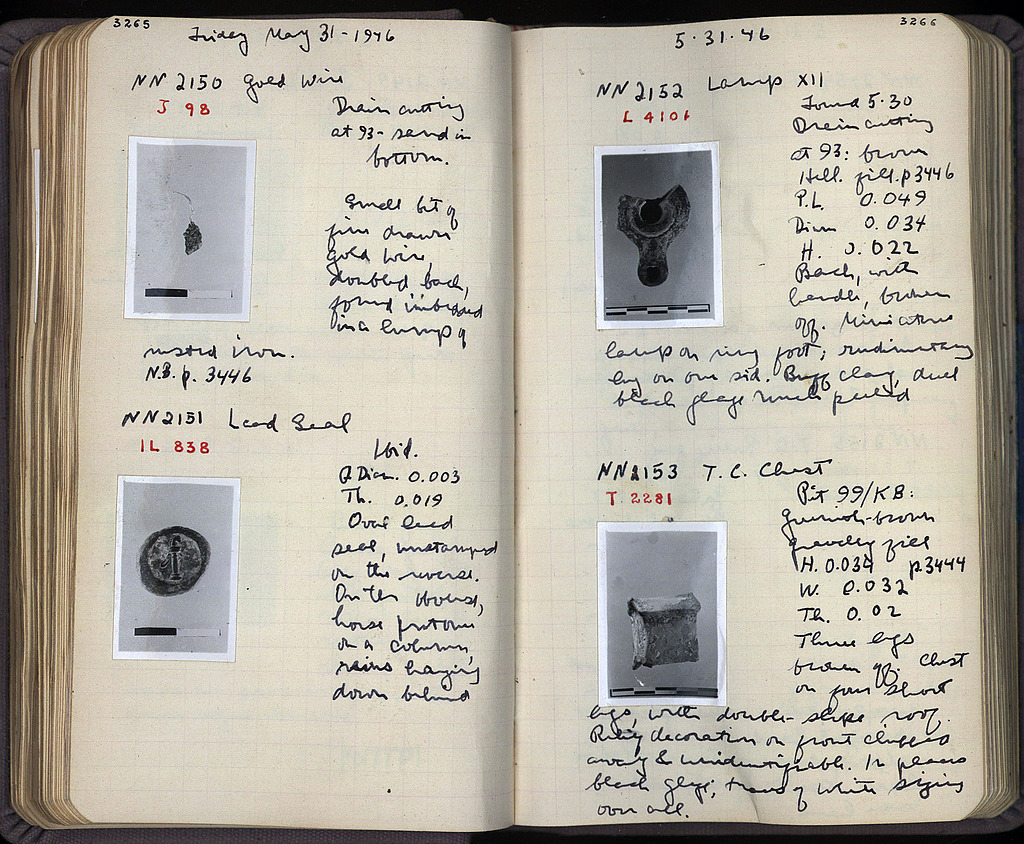 3265
Friday May 31-1946
NN 2150 Gold Wire
J 98
Drain cutting
at 93 - sand in
bottom.
Small bit of
fine drawn
gold wire,
doubled back,
found imbedded
in a lump of
rusted iron.
N.B. p. 3446
NN 2151 Lead Seal
IL 838
Ibid.
Diam. 0.003
Th. 0.019
Oval lead
seal, unstamped
on the reverse.
On the obverse,
horse protome
on a column,
reins hanging
down behind
3266
5.31.46
NN 2152 Lamp XII
L 4101
Found 5.30
Drain cutting
at 93: brown
Hell. fill. p 3446
P.L. 0.049
Diam 0.034
H. 0.022
Back, with
handle, broken
off. Miniature
lamp on ring foot; rudimentary
lug on one side. Buff clay, dull
black glaze much peeled
NN 2153 T.C. Chest
T 2281
Pit 99/KB:
greenish-brown
gravelly fill
H. 0.034 p.3444
W. 0.032
Th. 0.02
Three legs
broken off. Chest
on four short
legs, with double-slope roof.
Relief decoration on front chipped
away & unidentifiable. In places
black glaze, traces of white sizing
over all.